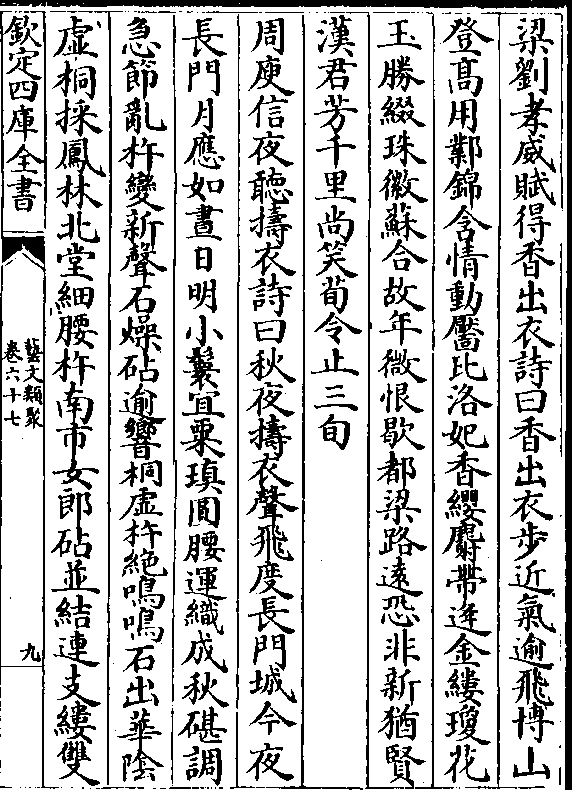 梁劉孝威賦得香出衣詩曰香出衣步近氣逾飛博山
登髙用鄴錦含情動靨比洛妃香纓麝帶逢金縷瓊花
玉勝綴珠徽蘇合故年微恨歇都梁路遠恐非新猶賢
漢君芳千里尚笑荀令止三旬
周庾信夜聽擣衣詩曰秋夜擣衣聲飛度長門城今夜
長門月應如晝日明小鬟宜粟瑱圓腰運織成秋碪調
急節亂杵變新聲石燥砧逾響桐虚杵絶鳴鳴石出華陰
虚桐採鳳林北堂細腰杵南市女郎砧並結連支縷雙
欽定四庫全書
藝文類聚
卷六十七
九